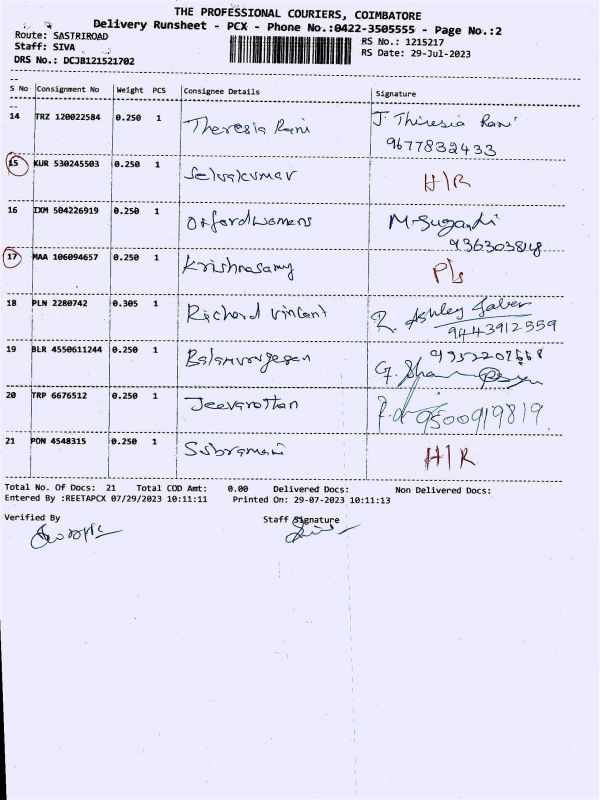 THE PROFESSIONAL COURIERS, COIMBATORE
Delivery Runsheet - PCX - Phone No.:0422-3505555 - Page No.:2
Route: SASTRIROAD
Staff: SIVA
DRS No.: DCJB121521702
RS No.: 1215217
RS Date: 29-Jul-2023
S No Consignment No Weight PCS Consignee Details Signature
14 TRZ 120022584 0.250 1 Theresia Rani J. Thiresia Rani
9677832433
15 KUR 530245503 0.250 1 Selvakumar H/R
16 IXM 504226919 0.250 1 Oxfordwomens M. Sugandi
17 MAA 106094657 0.250 1 Krishnasamy P/s
18 PLN 2280742 0.305 1 Richard Vincent R. Ashley Jaber
9443912559
19 BLR 4550611244 0.250 1 Balamurugesan
20 TRP 6676512 0.250 1 Jeevarathan 9500919819
21 PON 4548315 0.250 1 Subramani H/R
Total No. Of Docs: 21 Total COD Amt: 0.00 Delivered Docs: Non Delivered Docs:
Entered By :REETAPCX 07/29/2023 10:11:11 Printed On: 29-07-2023 10:11:13
Verified By Staff Signature